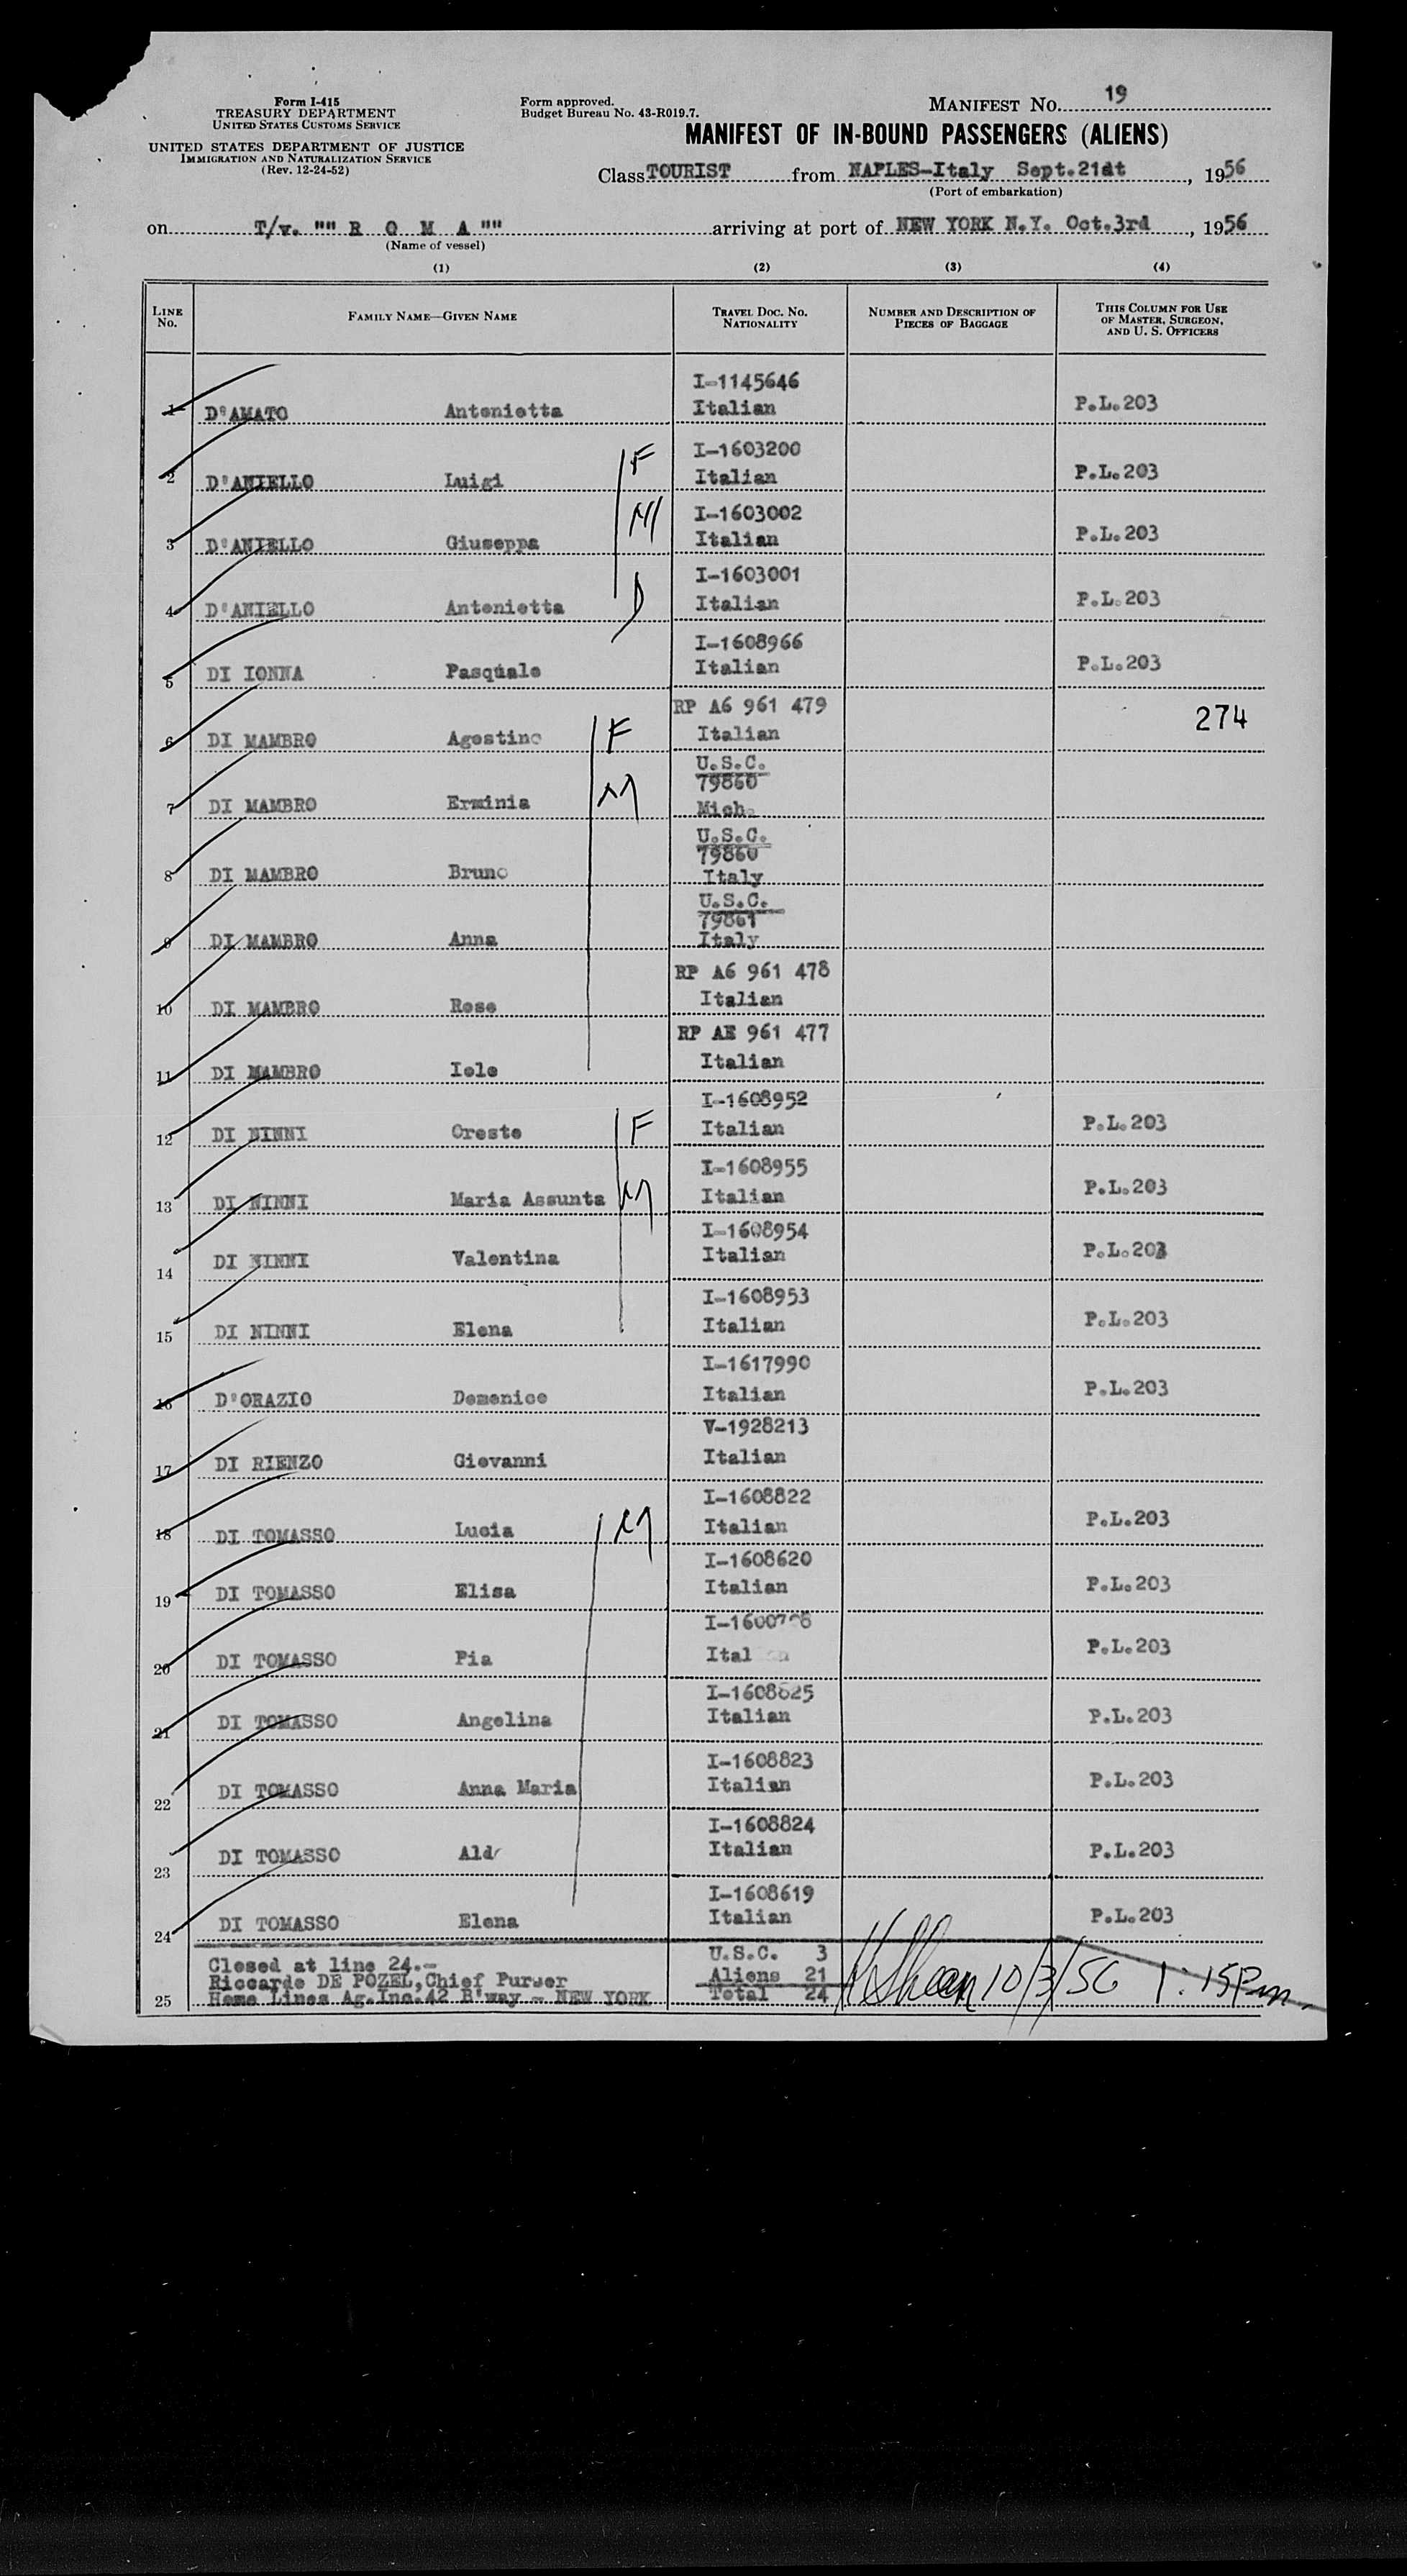 Form I-415
TREASURY DEPARTMENT
UNITED STATES CUSTOMS SERVICE
UNITED STATES DEPARTMENT OF JUSTICE
IMMIGRATION AND NATURALIZATION SERVICE
(Rev. 12-24-52)
Form approved.
Budget Bureau No. 43-R019.7.
MANIFEST No. 19
MANIFEST OF IN-BOUND PASSENGERS (ALIENS)
Class TOURIST from NAPLES-Italy Sept.21dt, 1956
(Port of embarkation)
on T/v. "" R O M A "" arriving at port of NEW YORK N.Y. Oct.3rd, 1956
(Name of vessel)
(1) (2) (3) (4)
LINE No. FAMILY NAME—GIVEN NAME TRAVEL DOC. No. NATIONALITY NUMBER AND DESCRIPTION OF PIECES OF BAGGAGE THIS COLUMN FOR USE OF MASTER, SURGEON, AND U. S. OFFICERS
I-1145646
1 D'AMATO Antonietta Italian P.L.203
I-1603200
2 D'ANIELLO Luigi F Italian P.L.203
I-1603002
3 D'ANIELLO Giuseppa M Italian P.L.203
I-1603001
4 D'ANIELLO Antonietta D Italian P.L.203
I-1608966
5 DI IONNA Pasquale Italian P.L.203
RP A6 961 479 274
6 DI MAMBRO Agostino F Italian
U.S.C.
79860
7 DI MAMBRO Erminia M Mich.
U.S.C.
79860
8 DI MAMBRO Bruno Italy
U.S.C.
79861
9 DI MAMBRO Anna Italy
RP A6 961 478
10 DI MAMBRO Roso Italian
RP AE 961 477
11 DI MAMBRO Iole Italian
I-1608952
12 DI NINNI Oreste F Italian P.L.203
I-1608955
13 DI NINNI Maria Assunta M Italian P.L.203
I-1608954
14 DI NINNI Valentina Italian P.L.203
I-1608953
15 DI NINNI Elena Italian P.L.203
I-1617990
16 D'ORAZIO Domenico Italian P.L.203
V-1928213
17 DI RIENZO Giovanni Italian
I-1608822
18 DI TOMASSO Lucia M Italian P.L.203
I-1608620
19 DI TOMASSO Elisa Italian P.L.203
20 DI TOMASSO Pia P.L.203
I-1608625
21 DI TOMASSO Angelina Italian P.L.203
I-1608823
22 DI TOMASSO Anna Maria Italian P.L.203
I-1608824
23 DI TOMASSO Aldo Italian P.L.203
I-1608619
24 DI TOMASSO Elena Italian P.L.203
Closed at line 24.- U.S.C. 3
Riccardo DE POZEL, Chief Purser Aliens 21
25 Home Lines Ag.Inc.42 B'way - NEW YORK Total 24 10/3/56 1:15Pm.